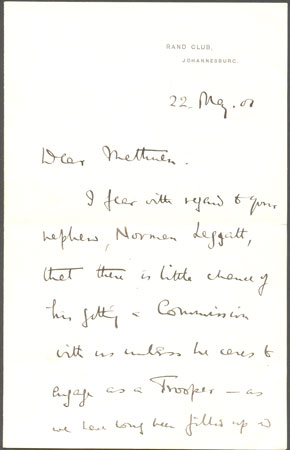 RAND CLUB,
JOHANNESBURG.
22. May. 01
Dear Methuen.
I fear with regard to your
nephew, Norman Leggatt,
that there is little chance of
his getting a Commission
with us unless he cares to
engage as a Trooper — as
we have long been filled up in